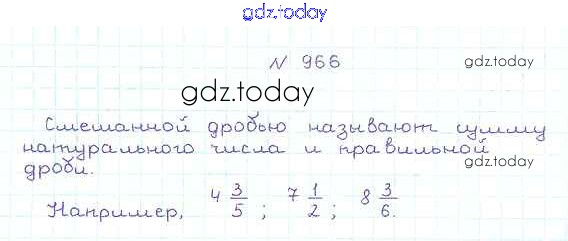 gdz.today
N 966
gdz.today
gdz.today
Смешанной дробью называют сумму
натурального числа и правильной
дроби.
Например, 4 3/5; 7 1/2; 8 3/6.
gdz.today